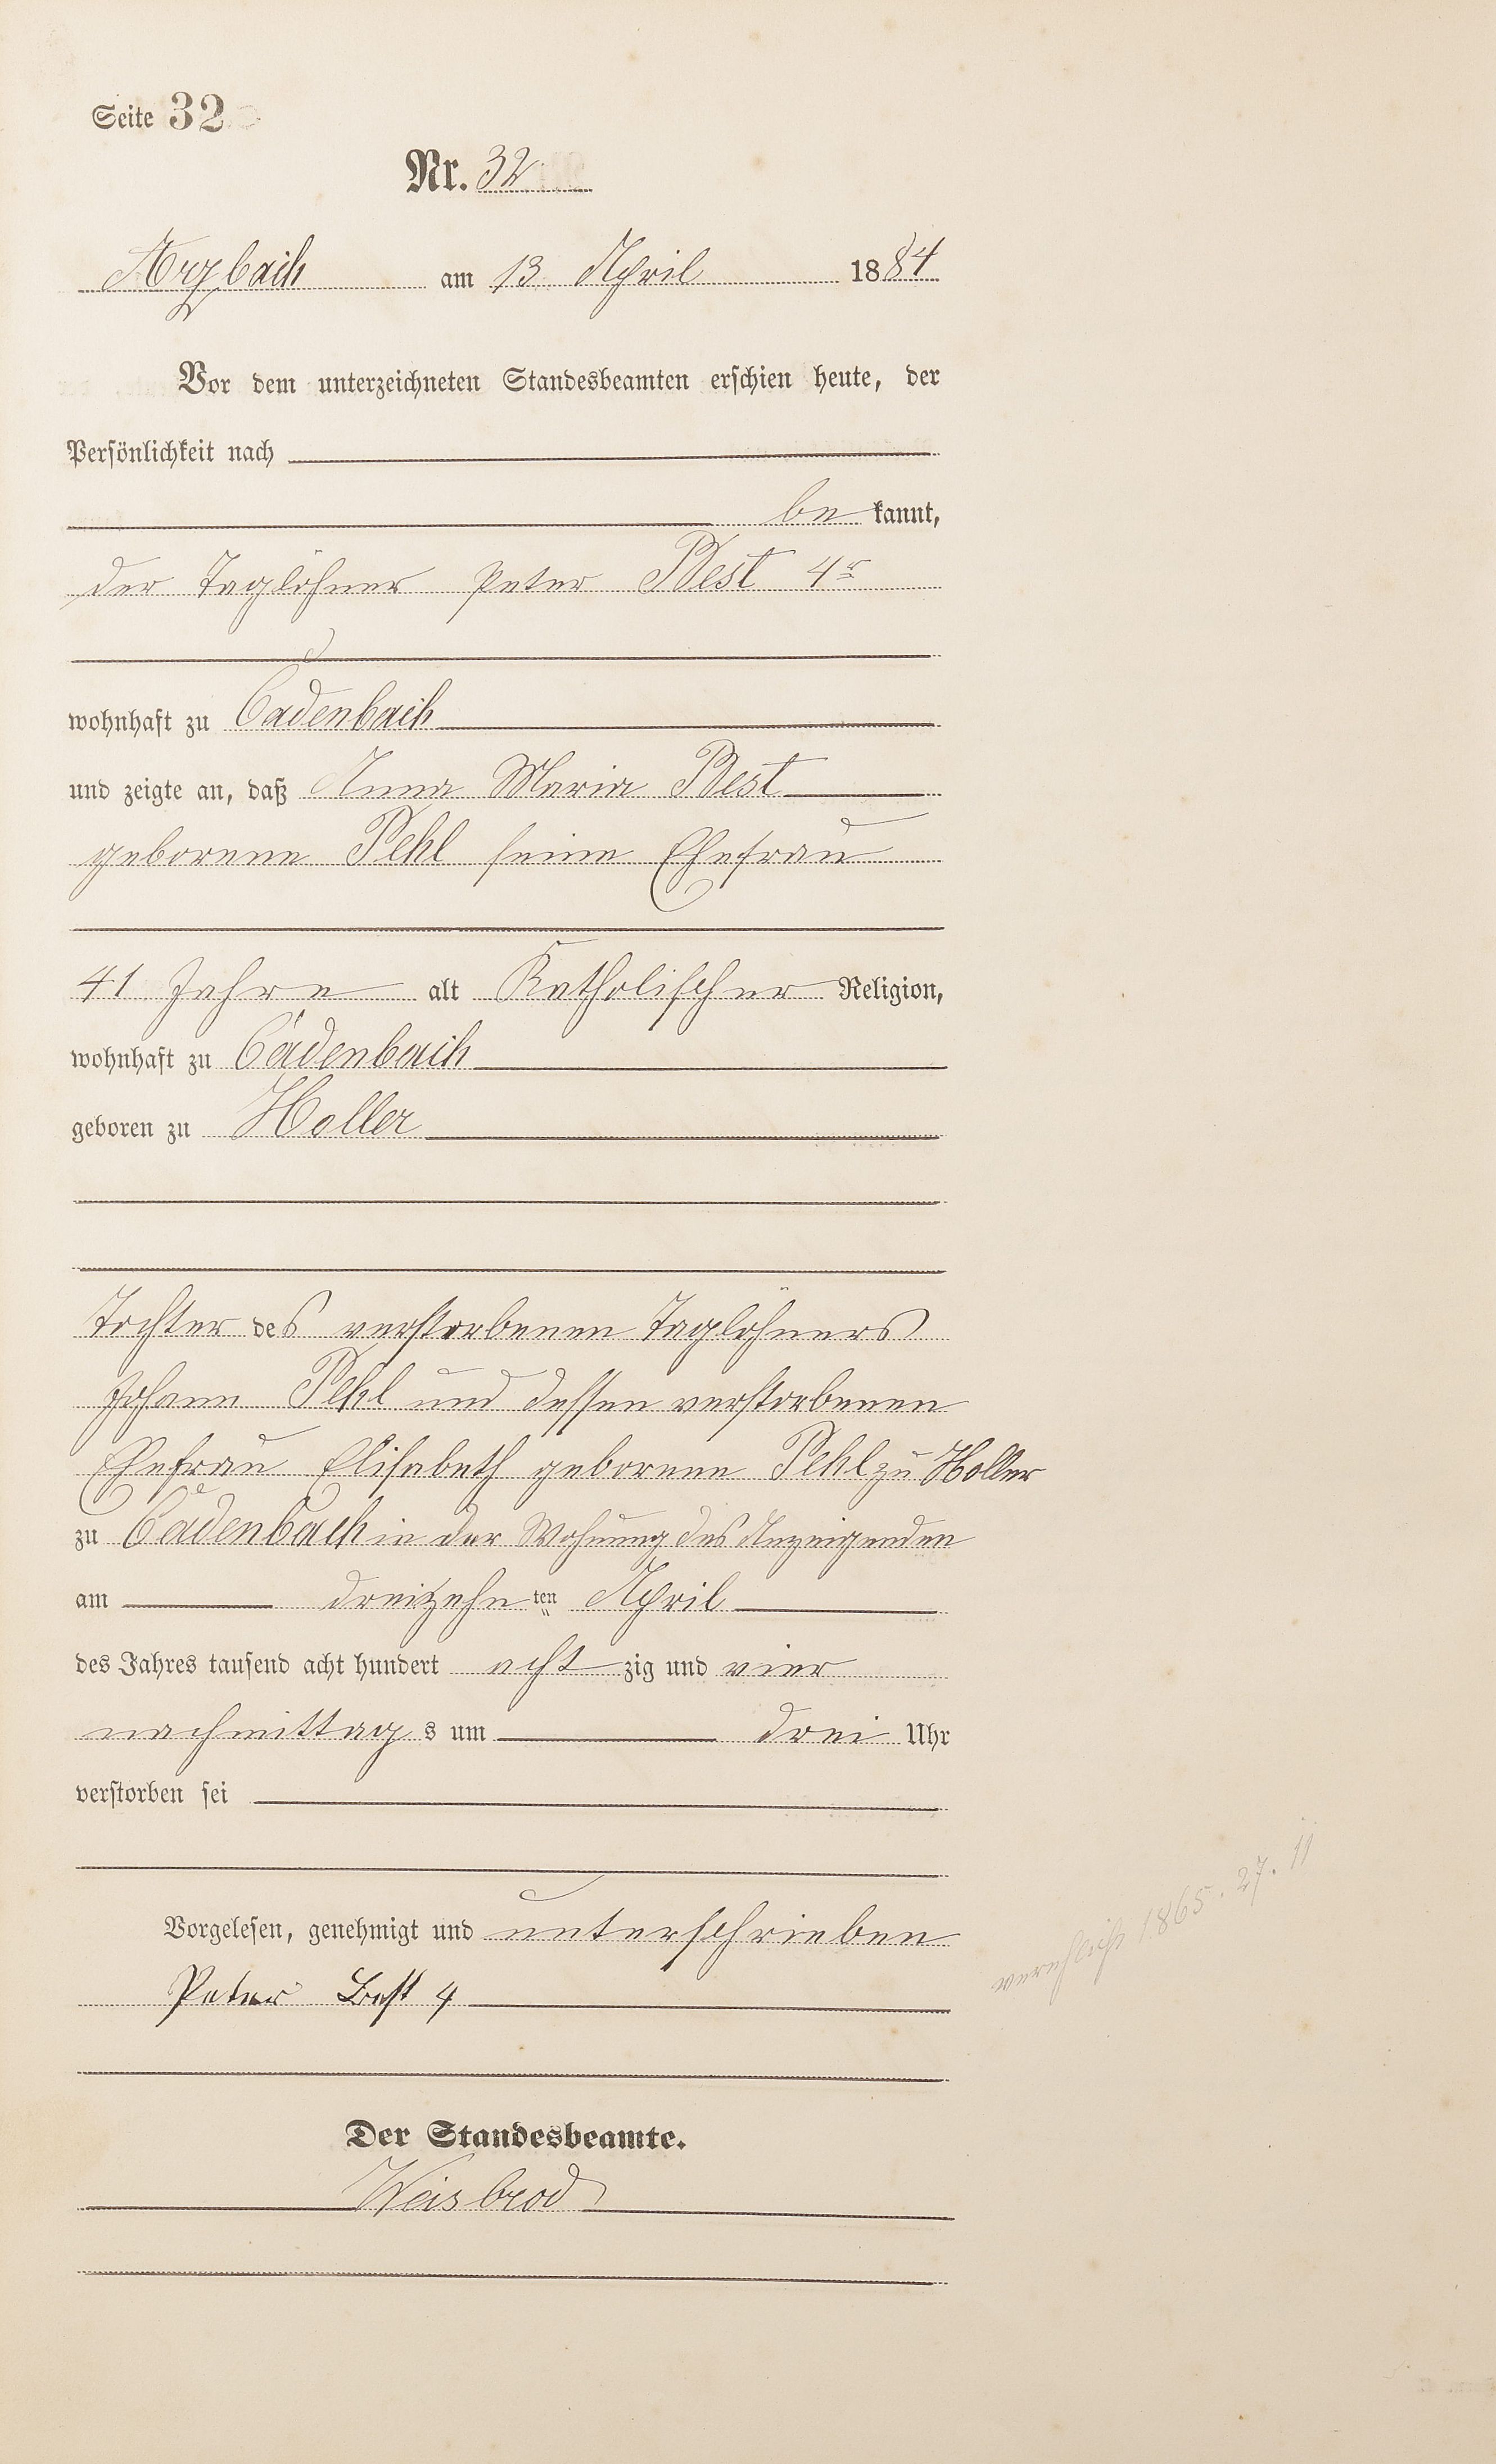 Seite 32
Nr. 32
Arzbach am 13 April 1884
Vor dem unterzeichneten Standesbeamten erschien heute, der
Persönlichkeit nach
be kannt,
der Taglöhner Peter Best 4r
wohnhaft zu Cadenbach
und zeigte an, daß Anna Maria Best
geborene Pehl seine Ehefrau
41 Jahre alt Katholischer Religion,
wohnhaft zu Cadenbach
geboren zu Holler
Tochter des verstorbenen Taglöhners
Johann Pehl und dessen verstorbenen
Ehefrau Elisabeth geborene Pehl zu Holler
zu Cadenbach in der Wohnung des Anzeigenden
am dreizehn ten April
des Jahres tausend acht hundert acht zig und vier
nachmittag s um drei Uhr
verstorben sei
Vorgelesen, genehmigt und unterschrieben
Peter Best 4
1865. 27. 11
Der Standesbeamte.
Weisbrod